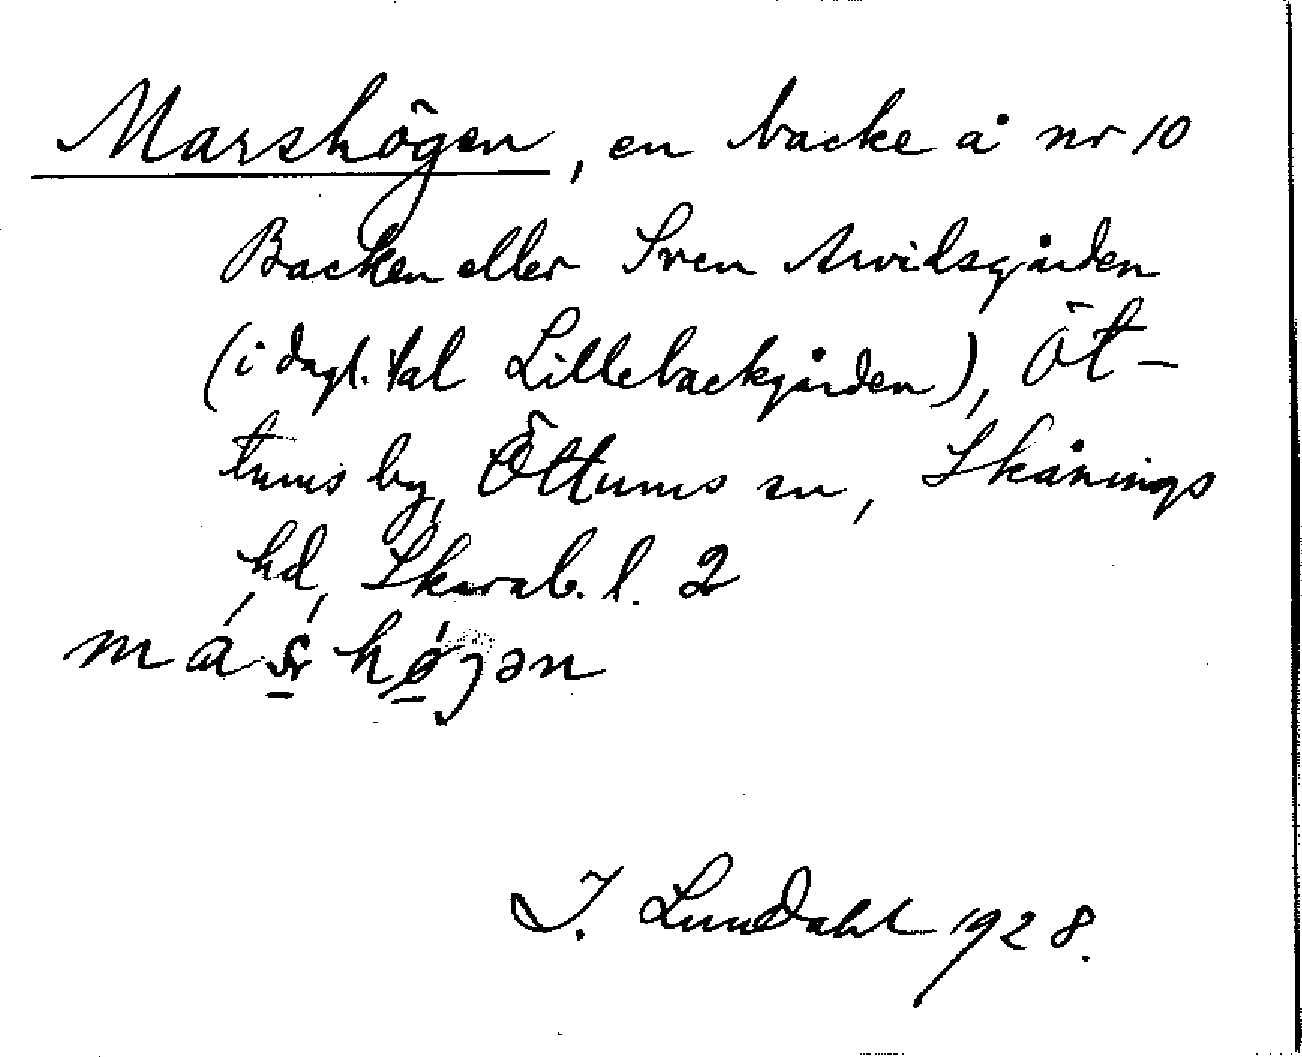 Marshögen, en backe å nr 10
Backen eller Sven Arvidsgården
(i dagl. tal Lillebackgården), Öt-
tums by, Öttums sn, Skånings
hd, Skarab. l. 2
máʂ́hǿjən
I. Lundahl 1928.